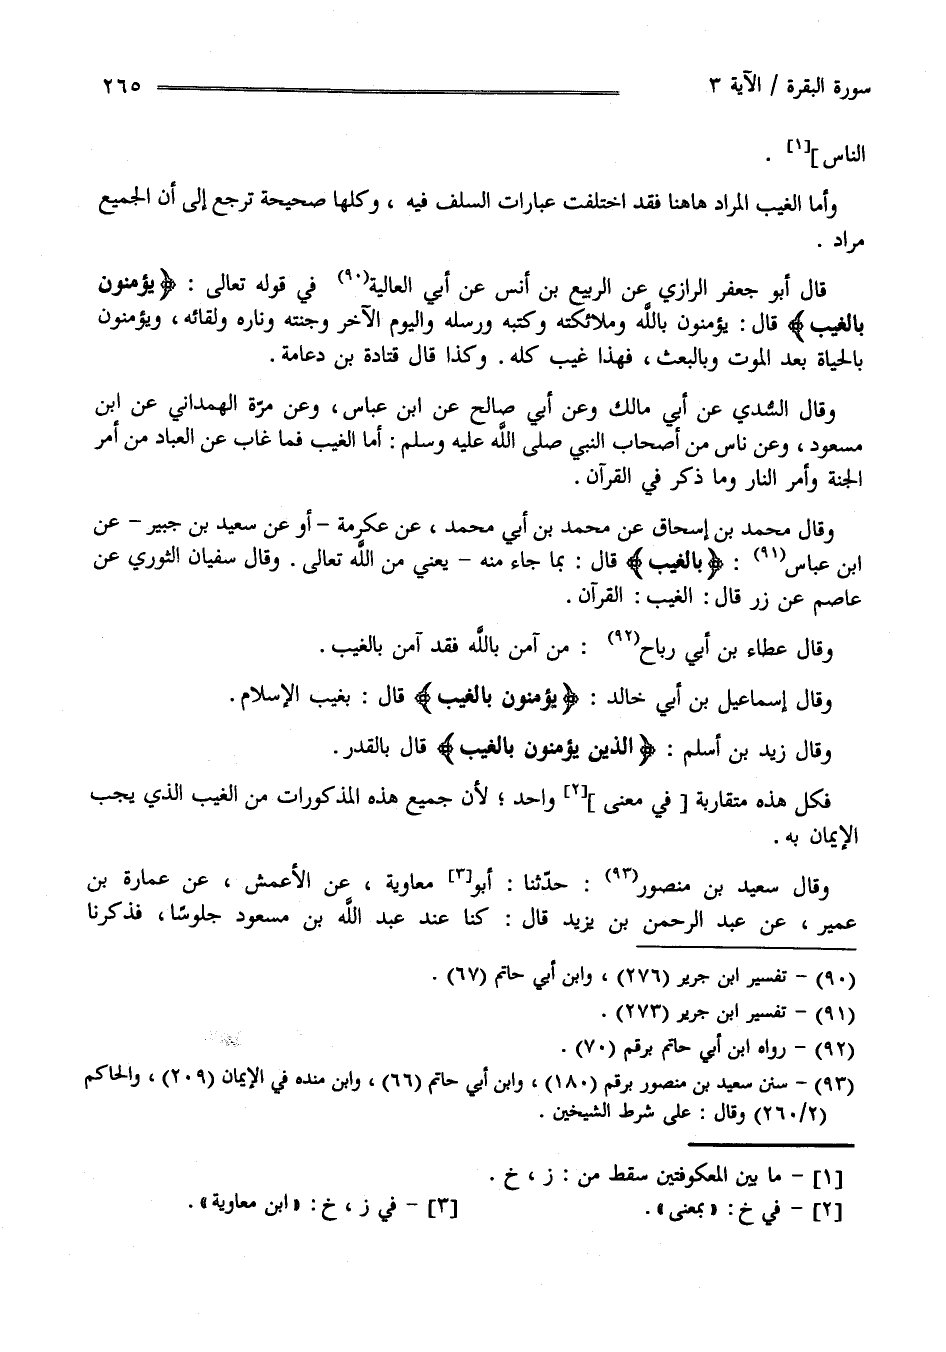 سورة البقرة / الآية ٣ ٢٦٥
الناس][١] .
وأما الغيب المراد هاهنا فقد اختلفت عبارات السلف فيه ، وكلها صحيحة ترجع إلى أن الجميع
مراد .
قال أبو جعفر الرازي عن الربيع بن أنس عن أبي العالية(٩٠) في قوله تعالى : ﴿يؤمنون
بالغيب﴾ قال : يؤمنون باللَّه وملائكته وكتبه ورسله واليوم الآخر وجنته وناره ولقائه ، ويؤمنون
بالحياة بعد الموت وبالبعث ، فهذا غيب كله . وكذا قال قتادة بن دعامة .
وقال السُّدي عن أبي مالك وعن أبي صالح عن ابن عباس ، وعن مرّة الهمداني عن ابن
مسعود ، وعن ناس من أصحاب النبي صلى اللَّه عليه وسلم : أما الغيب فما غاب عن العباد من أمر
الجنة وأمر النار وما ذكر في القرآن .
وقال محمد بن إسحاق عن محمد بن أبي محمد ، عن عكرمة – أو عن سعيد بن جبير – عن
ابن عباس(٩١) : ﴿بالغيب﴾ قال : بما جاء منه – يعني من اللَّه تعالى . وقال سفيان الثوري عن
عاصم عن زر قال : الغيب : القرآن .
وقال عطاء بن أبي رباح(٩٢) : من آمن باللَّه فقد آمن بالغيب .
وقال إسماعيل بن أبي خالد : ﴿يؤمنون بالغيب﴾ قال : بغيب الإسلام .
وقال زيد بن أسلم : ﴿الذين يؤمنون بالغيب﴾ قال بالقدر .
فكل هذه متقاربة [ في معنى ][٢] واحد ؛ لأن جميع هذه المذكورات من الغيب الذي يجب
الإيمان به .
وقال سعيد بن منصور(٩٣) : حدّثنا : أبو[٣] معاوية ، عن الأعمش ، عن عمارة بن
عمير ، عن عبد الرحمن بن يزيد قال : كنا عند عبد اللَّه بن مسعود جلوسًا ، فذكرنا
(٩٠) – تفسير ابن جرير (٢٧٦) ، وابن أبي حاتم (٦٧) .
(٩١) – تفسير ابن جرير (٢٧٣) .
(٩٢) – رواه ابن أبي حاتم برقم (٧٠) .
(٩٣) – سنن سعيد بن منصور برقم (١٨٠) ، وابن أبي حاتم (٦٦) ، وابن منده في الإيمان (٢٠٩) ، والحاكم
(٢٦٠/٢) وقال : على شرط الشيخين .
[١] – ما بين المعكوفتين سقط من : ز ، خ .
[٢] – في خ : « بمعنى » . [٣] – في ز ، خ : « ابن معاوية » .